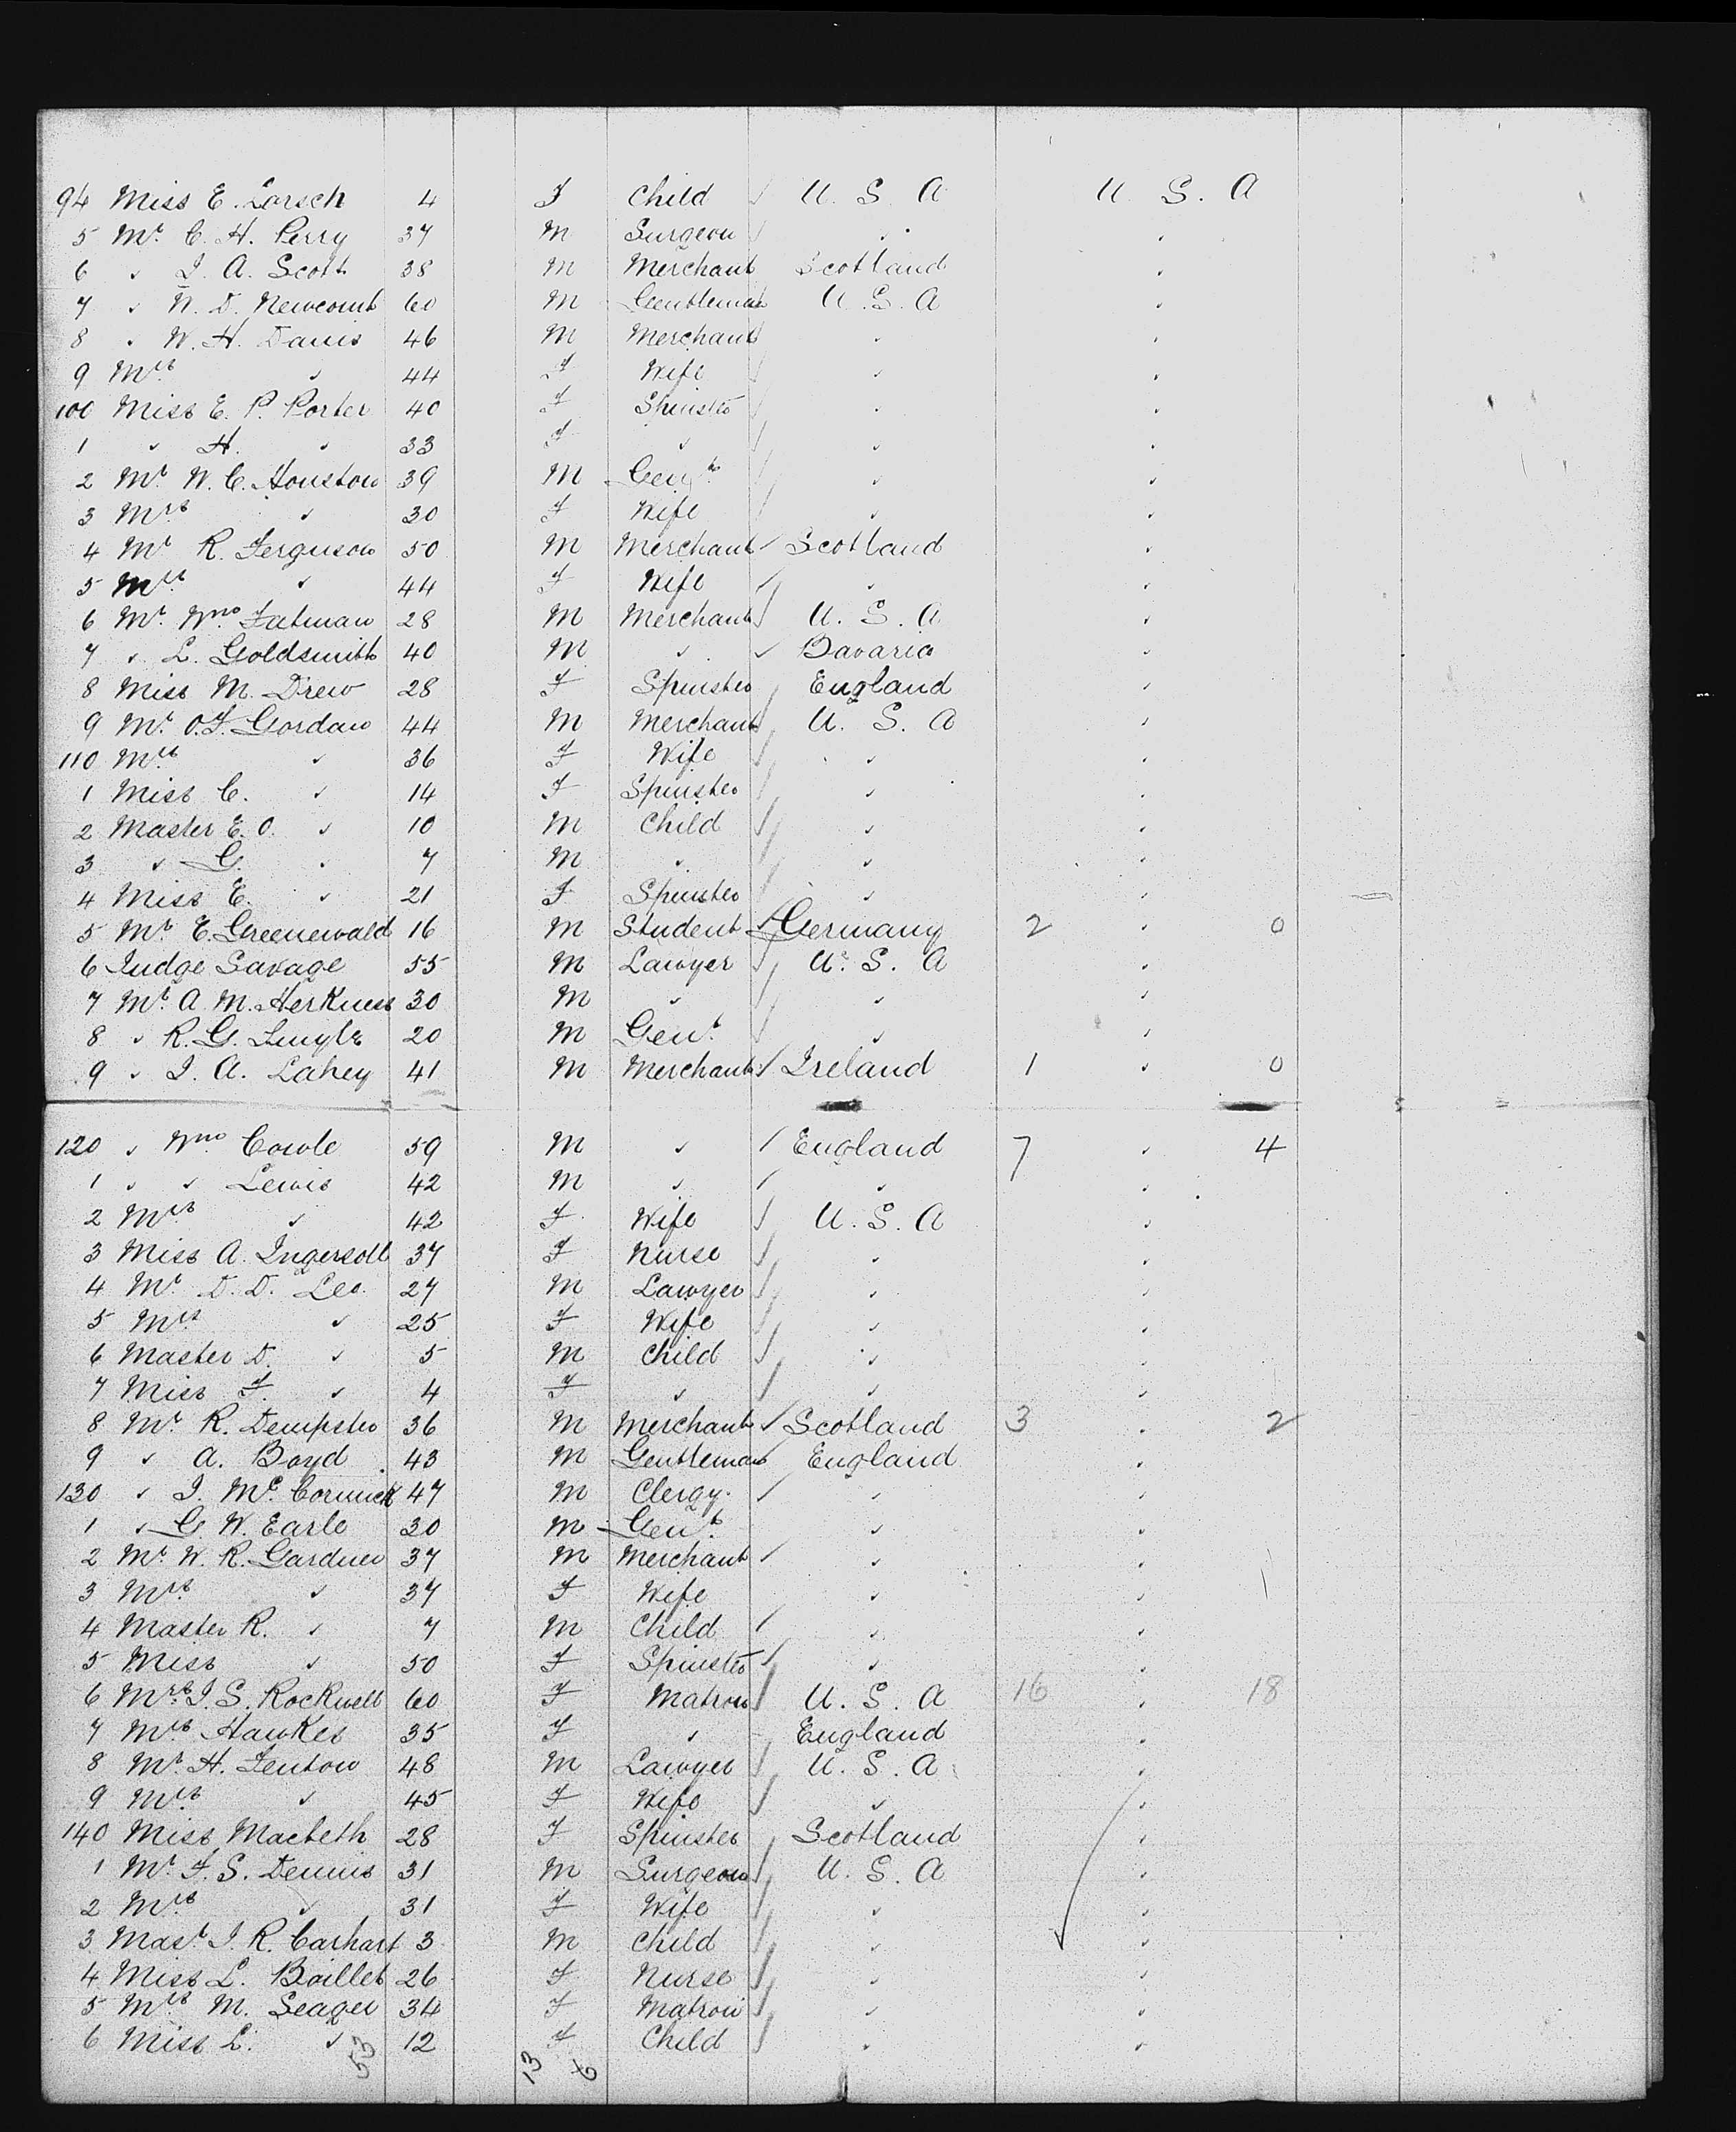 94 Miss E. Lorsch 4 F Child U. S. A U. S. A
5 Mr. C. H. Perry 37 M Surgeon " "
6 " J. A. Scott 38 M Merchant Scotland "
7 " W. D. Newcomb 60 M Gentleman U. S. A "
8 " W. H. Davis 46 M Merchant " "
9 Mrs. " 44 F Wife " "
100 Miss E. P. Porter 40 F Spinster " "
1 " H. " 33 F " " "
2 Mr W. C. Houston 39 M Gent. " "
3 Mrs " 30 F Wife " "
4 Mr R. Ferguson 50 M Merchant Scotland "
5 Mrs. " 44 F Wife " "
6 Mr. Wm. Fatman 28 M Merchant U. S. A "
7 " L. Goldsmith 40 M " Bavaria "
8 Miss M. Drew 28 F Spinster England "
9 Mr. O. F. Gordan 44 M Merchant U. S. A "
110 Mrs. " 36 F Wife " "
1 Miss C. " 14 F Spinster " "
2 Master E. O. " 10 M Child " "
3 " G. " 7 M " " "
4 Miss E. " 21 F Spinster " "
5 Mr. E. Greenewald 16 M Student Germany 2 " 0
6 Judge Savage 55 M Lawyer U. S. A "
7 Mr. A M. Herkness 30 M " " "
8 " R. G. 20 M Gent. " "
9 " J. A. Lahey 41 M Merchant Ireland 1 " 0
120 " Wm. Cowle 59 M " England 7 " 4
1 " " Lewis 42 M " " "
2 Mrs. " 42 F Wife U. S. A "
3 Miss A. Ingersoll 37 F Nurse " "
4 Mr. D. D. Lee 27 M Lawyer " "
5 Mrs " 25 F Wife " "
6 Master D. " 5 M Child " "
7 Miss F. " 4 F " " "
8 Mr. R. Dempster 36 M Merchant Scotland 3 " 2
9 " A. Boyd 43 M Gentleman England "
130 " J. McCormick 47 M Clergy. " "
1 " G. W. Earle 30 M Gent. " "
2 Mr. W. R. Gardner 37 M Merchant " "
3 Mrs. " 37 F Wife " "
4 Master R. " 7 M Child " "
5 Miss " 50 F Spinster " "
6 Mrs. J. S. Rockwell 60 F Matron U. S. A 16 " 18
7 Mrs Hawkes 35 F " England "
8 Mr. H. Fenton 48 M Lawyer U. S. A "
9 Mrs. " 45 F Wife " "
140 Miss Macbeth 28 F Spinster Scotland "
1 Mr. F. S. Dennis 31 M Surgeon U. S. A "
2 Mrs. " 31 F Wife " "
3 Mast. J. R. Carhart 3 M Child " "
4 Miss L. Baillet 26 F Nurse " "
5 Mrs M. Seager 34 F Matron " "
6 Miss L. " 12 F Child " "
53 13 6